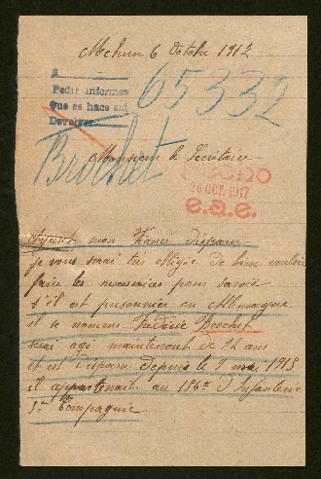 Mehun 6 Octobre 1917
2
Pedir informes
Que se hace así
Devolver
65332
Brochet
Monsieur le Secrétaire
FECHO
20 OCT. 1917
e.a.e.
Ayant mon disparu
je vous serai très obligée de bien vouloir
faire les nécessaires pour savoir
s'il est prisonnier en Allemagne
il se nomme Frédéric Brochet
serai agé maintenant de ans
et est disparu depuis le 9 mai 1915
il appartenait au 186e d'Infanterie
5e Compagnie